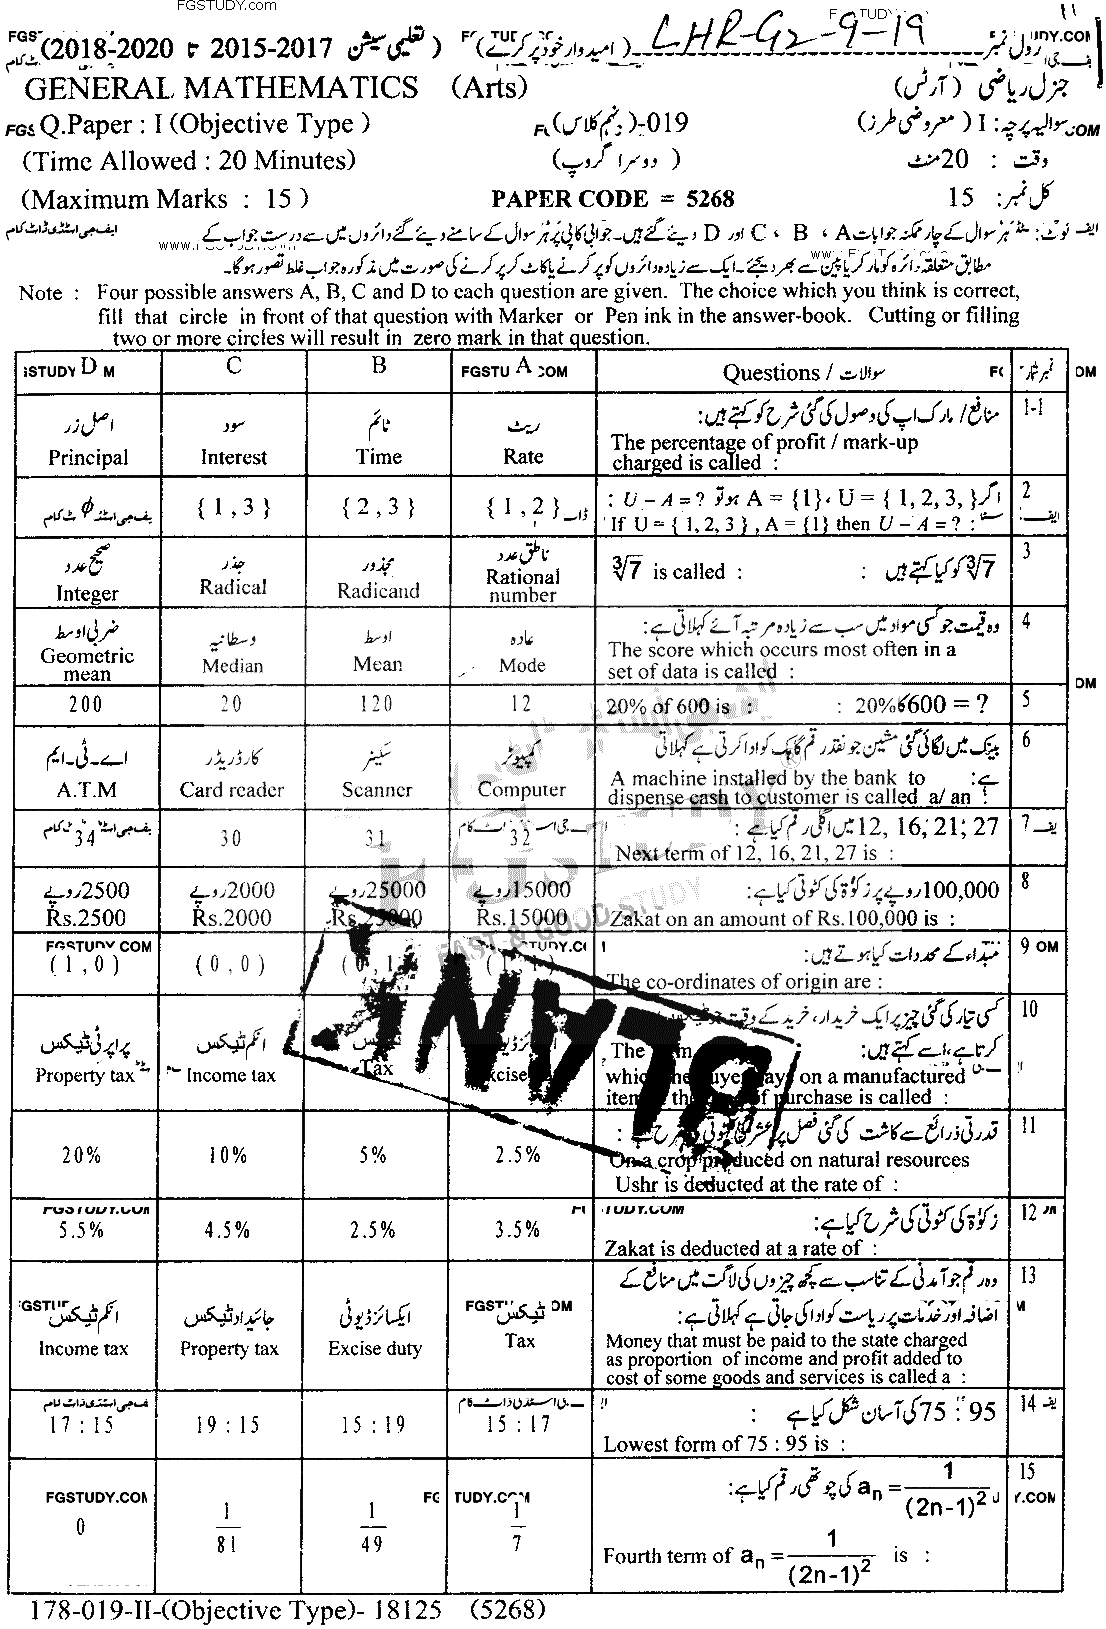 FGSTUDY.com
LHR-G2-9-19
(تعلیمی سیشن 2015-2017 تا 2018-2020)
(امیدوار خود پر کرے)
رول نمبر
GENERAL MATHEMATICS (Arts)
جنرل ریاضی (آرٹس)
Q.Paper : I (Objective Type)
019-(نہم کلاس)
سوالیہ پرچہ: I (معروضی طرز)
(Time Allowed : 20 Minutes)
(دوسرا گروپ)
وقت : 20 منٹ
(Maximum Marks : 15)
PAPER CODE = 5268
کل نمبر: 15
نوٹ: ہر سوال کے چار ممکنہ جوابات A، B، C اور D دیئے گئے ہیں۔ جوابی کاپی پر ہر سوال کے سامنے دیئے گئے دائروں میں سے درست جواب کے
مطابق متعلقہ دائرہ کو مارکر یا پین سے بھر دیجئے۔ ایک سے زیادہ دائروں کو پر کرنے یا کاٹ کر پر کرنے کی صورت میں مذکورہ جواب غلط تصور ہوگا۔
Note : Four possible answers A, B, C and D to each question are given. The choice which you think is correct,
fill that circle in front of that question with Marker or Pen ink in the answer-book. Cutting or filling
two or more circles will result in zero mark in that question.
D C B A Questions / سوالات نمبر شمار
1-1 منافع/ مارک اپ کی وصول کی گئی شرح کو کہتے ہیں:
The percentage of profit / mark-up
charged is called :
اصل زر سود ٹائم ریٹ
Principal Interest Time Rate
2 اگر U = { 1, 2, 3, }، A = {1} ہو تو U – A = ? :
If U = { 1, 2, 3 } , A = {1} then U – A = ? :
ϕ { 1 , 3 } { 2 , 3 } { 1 , 2 }
3 ∛7 کو کیا کہتے ہیں :
∛7 is called :
صحیح عدد جذر مجذور ناطق عدد
Integer Radical Radicand Rational number
4 وہ قیمت جو کسی مواد میں سب سے زیادہ مرتبہ آئے کہلاتی ہے:
The score which occurs most often in a
set of data is called :
ضربی اوسط وسطانیہ اوسط عادہ
Geometric mean Median Mean Mode
5 20% کا 600 = ? :
20% of 600 is :
200 20 120 12
6 بینک میں لگائی گئی مشین جو نقد رقم گاہک کو ادا کرتی ہے کہلاتی
ہے:
A machine installed by the bank to
dispense cash to customer is called a/ an :
اے۔ٹی۔ایم کارڈ ریڈر سکینر کمپیوٹر
A.T.M Card reader Scanner Computer
7 12, 16, 21, 27 میں اگلی رقم کیا ہے :
Next term of 12, 16, 21, 27 is :
34 30 31 32
8 100,000 روپے پر زکوٰۃ کی کٹوتی کیا ہے:
Zakat on an amount of Rs.100,000 is :
2500 روپے 2000 روپے 25000 روپے 15000 روپے
Rs.2500 Rs.2000 Rs.25000 Rs.15000
9 مبداء کے محددات کیا ہوتے ہیں:
The co-ordinates of origin are :
( 1 , 0 ) ( 0 , 0 )
10 کسی تیار کی گئی چیز پر ایک خریدار، خرید کے وقت جو ٹیکس
کرتا ہے، اسے کہتے ہیں:
The
which the buyer pays on a manufactured
item purchase is called :
پراپرٹی ٹیکس انکم ٹیکس
Property tax Income tax Tax Excise
11 قدرتی ذرائع سے کاشت کی گئی فصل پر عشر کی کٹوتی کی شرح ہے :
On a crop produced on natural resources
Ushr is deducted at the rate of :
20% 10% 5% 2.5%
12 زکوٰۃ کی کٹوتی کی شرح کیا ہے:
Zakat is deducted at a rate of :
5.5% 4.5% 2.5% 3.5%
13 وہ رقم جو آمدنی کے تناسب سے کچھ چیزوں کی لاگت میں منافع کے
اضافہ اور خدمات پر ریاست کو ادا کی جاتی ہے کہلاتی ہے:
Money that must be paid to the state charged
as proportion of income and profit added to
cost of some goods and services is called a :
انکم ٹیکس جائیداد ٹیکس ایکسائز ڈیوٹی ٹیکس
Income tax Property tax Excise duty Tax
14 75 : 95 کی آسان شکل کیا ہے :
Lowest form of 75 : 95 is :
17 : 15 19 : 15 15 : 19 15 : 17
15 aₙ = 1/(2n-1)² کی چوتھی رقم کیا ہے:
Fourth term of aₙ = 1/(2n-1)² is :
0 1/81 1/49 1/7
178-019-II-(Objective Type)- 18125 (5268)